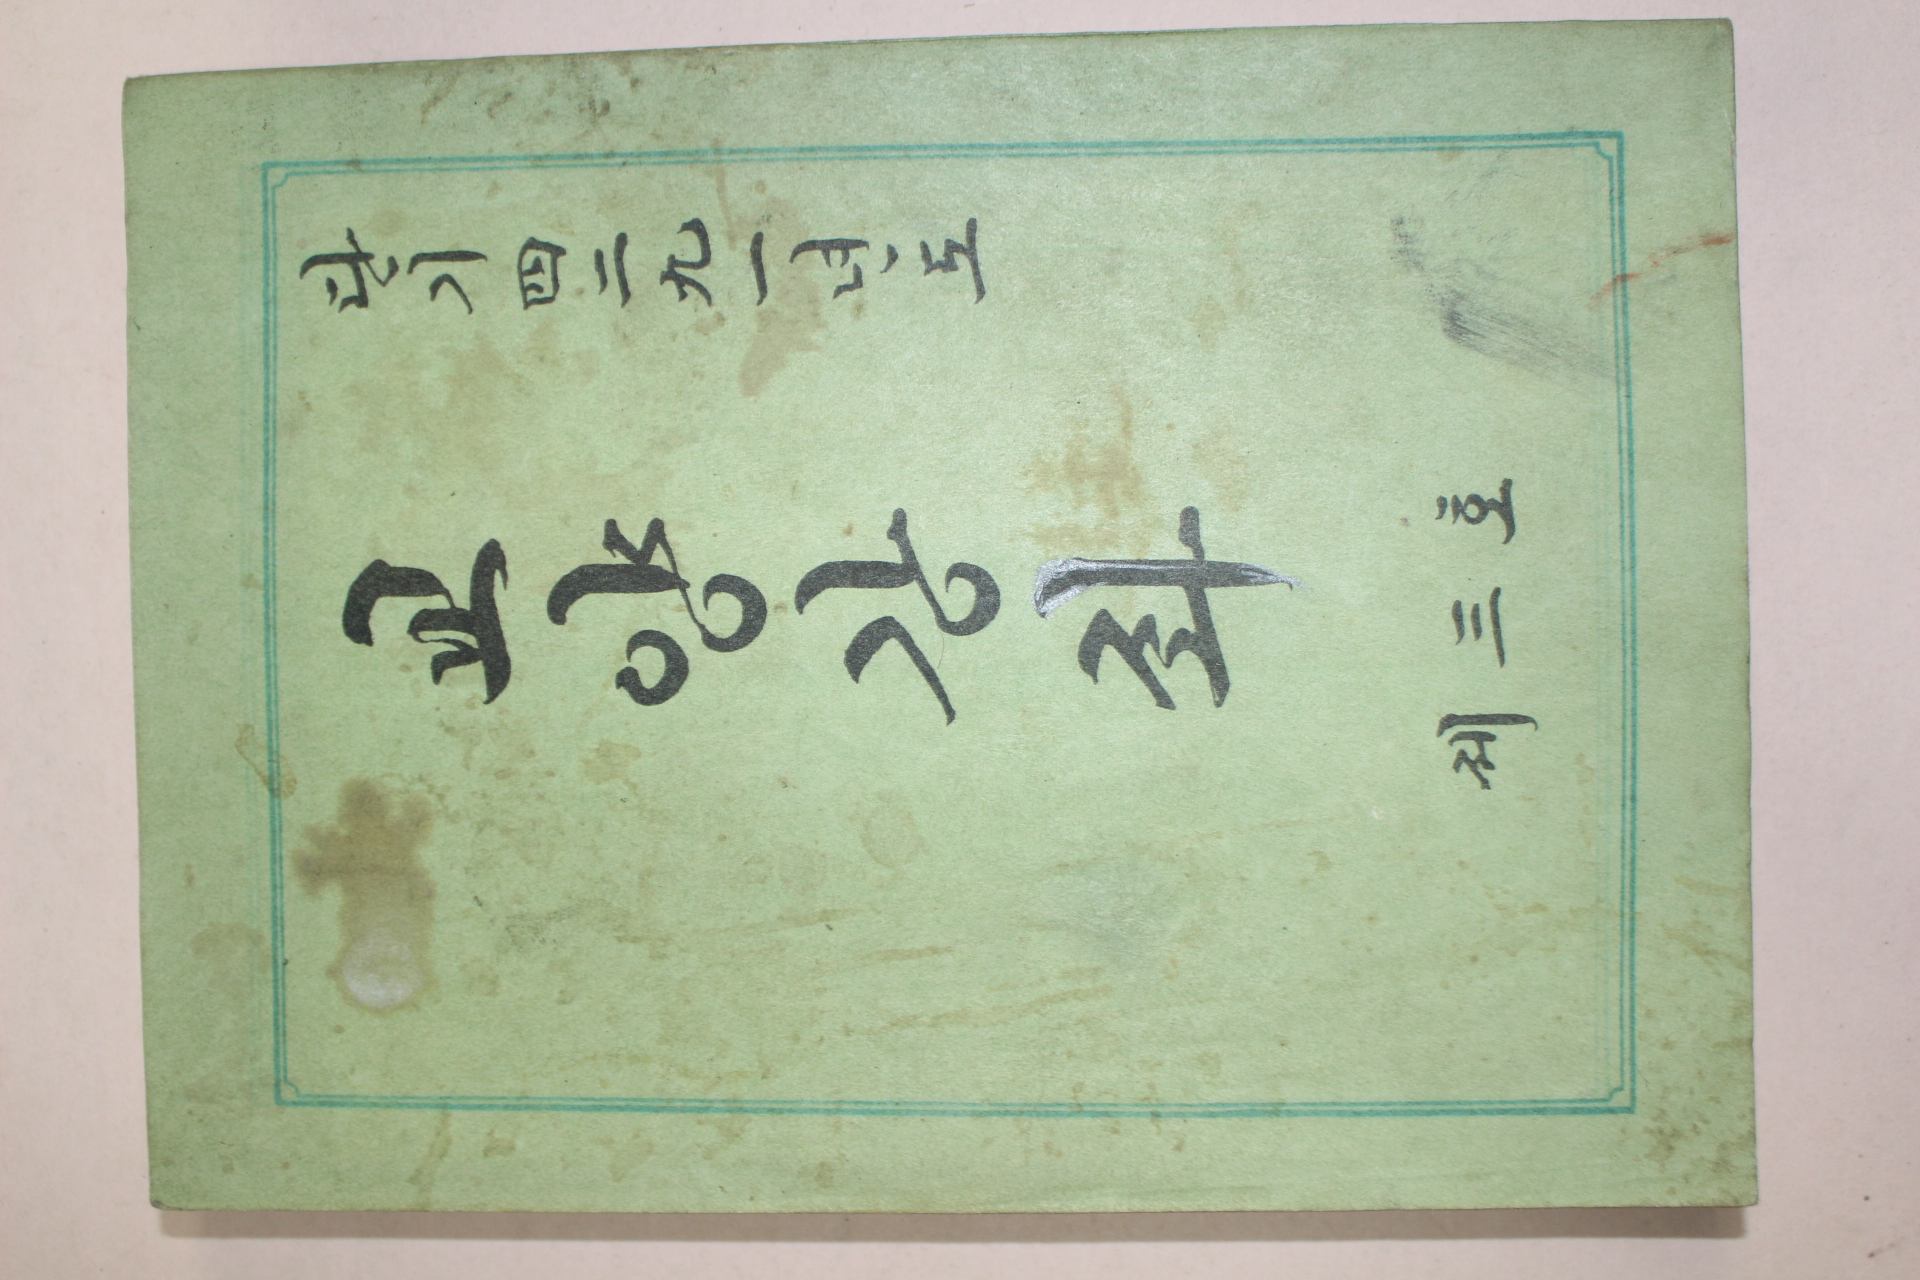 단기四二九一년도
교양강좌
제三호